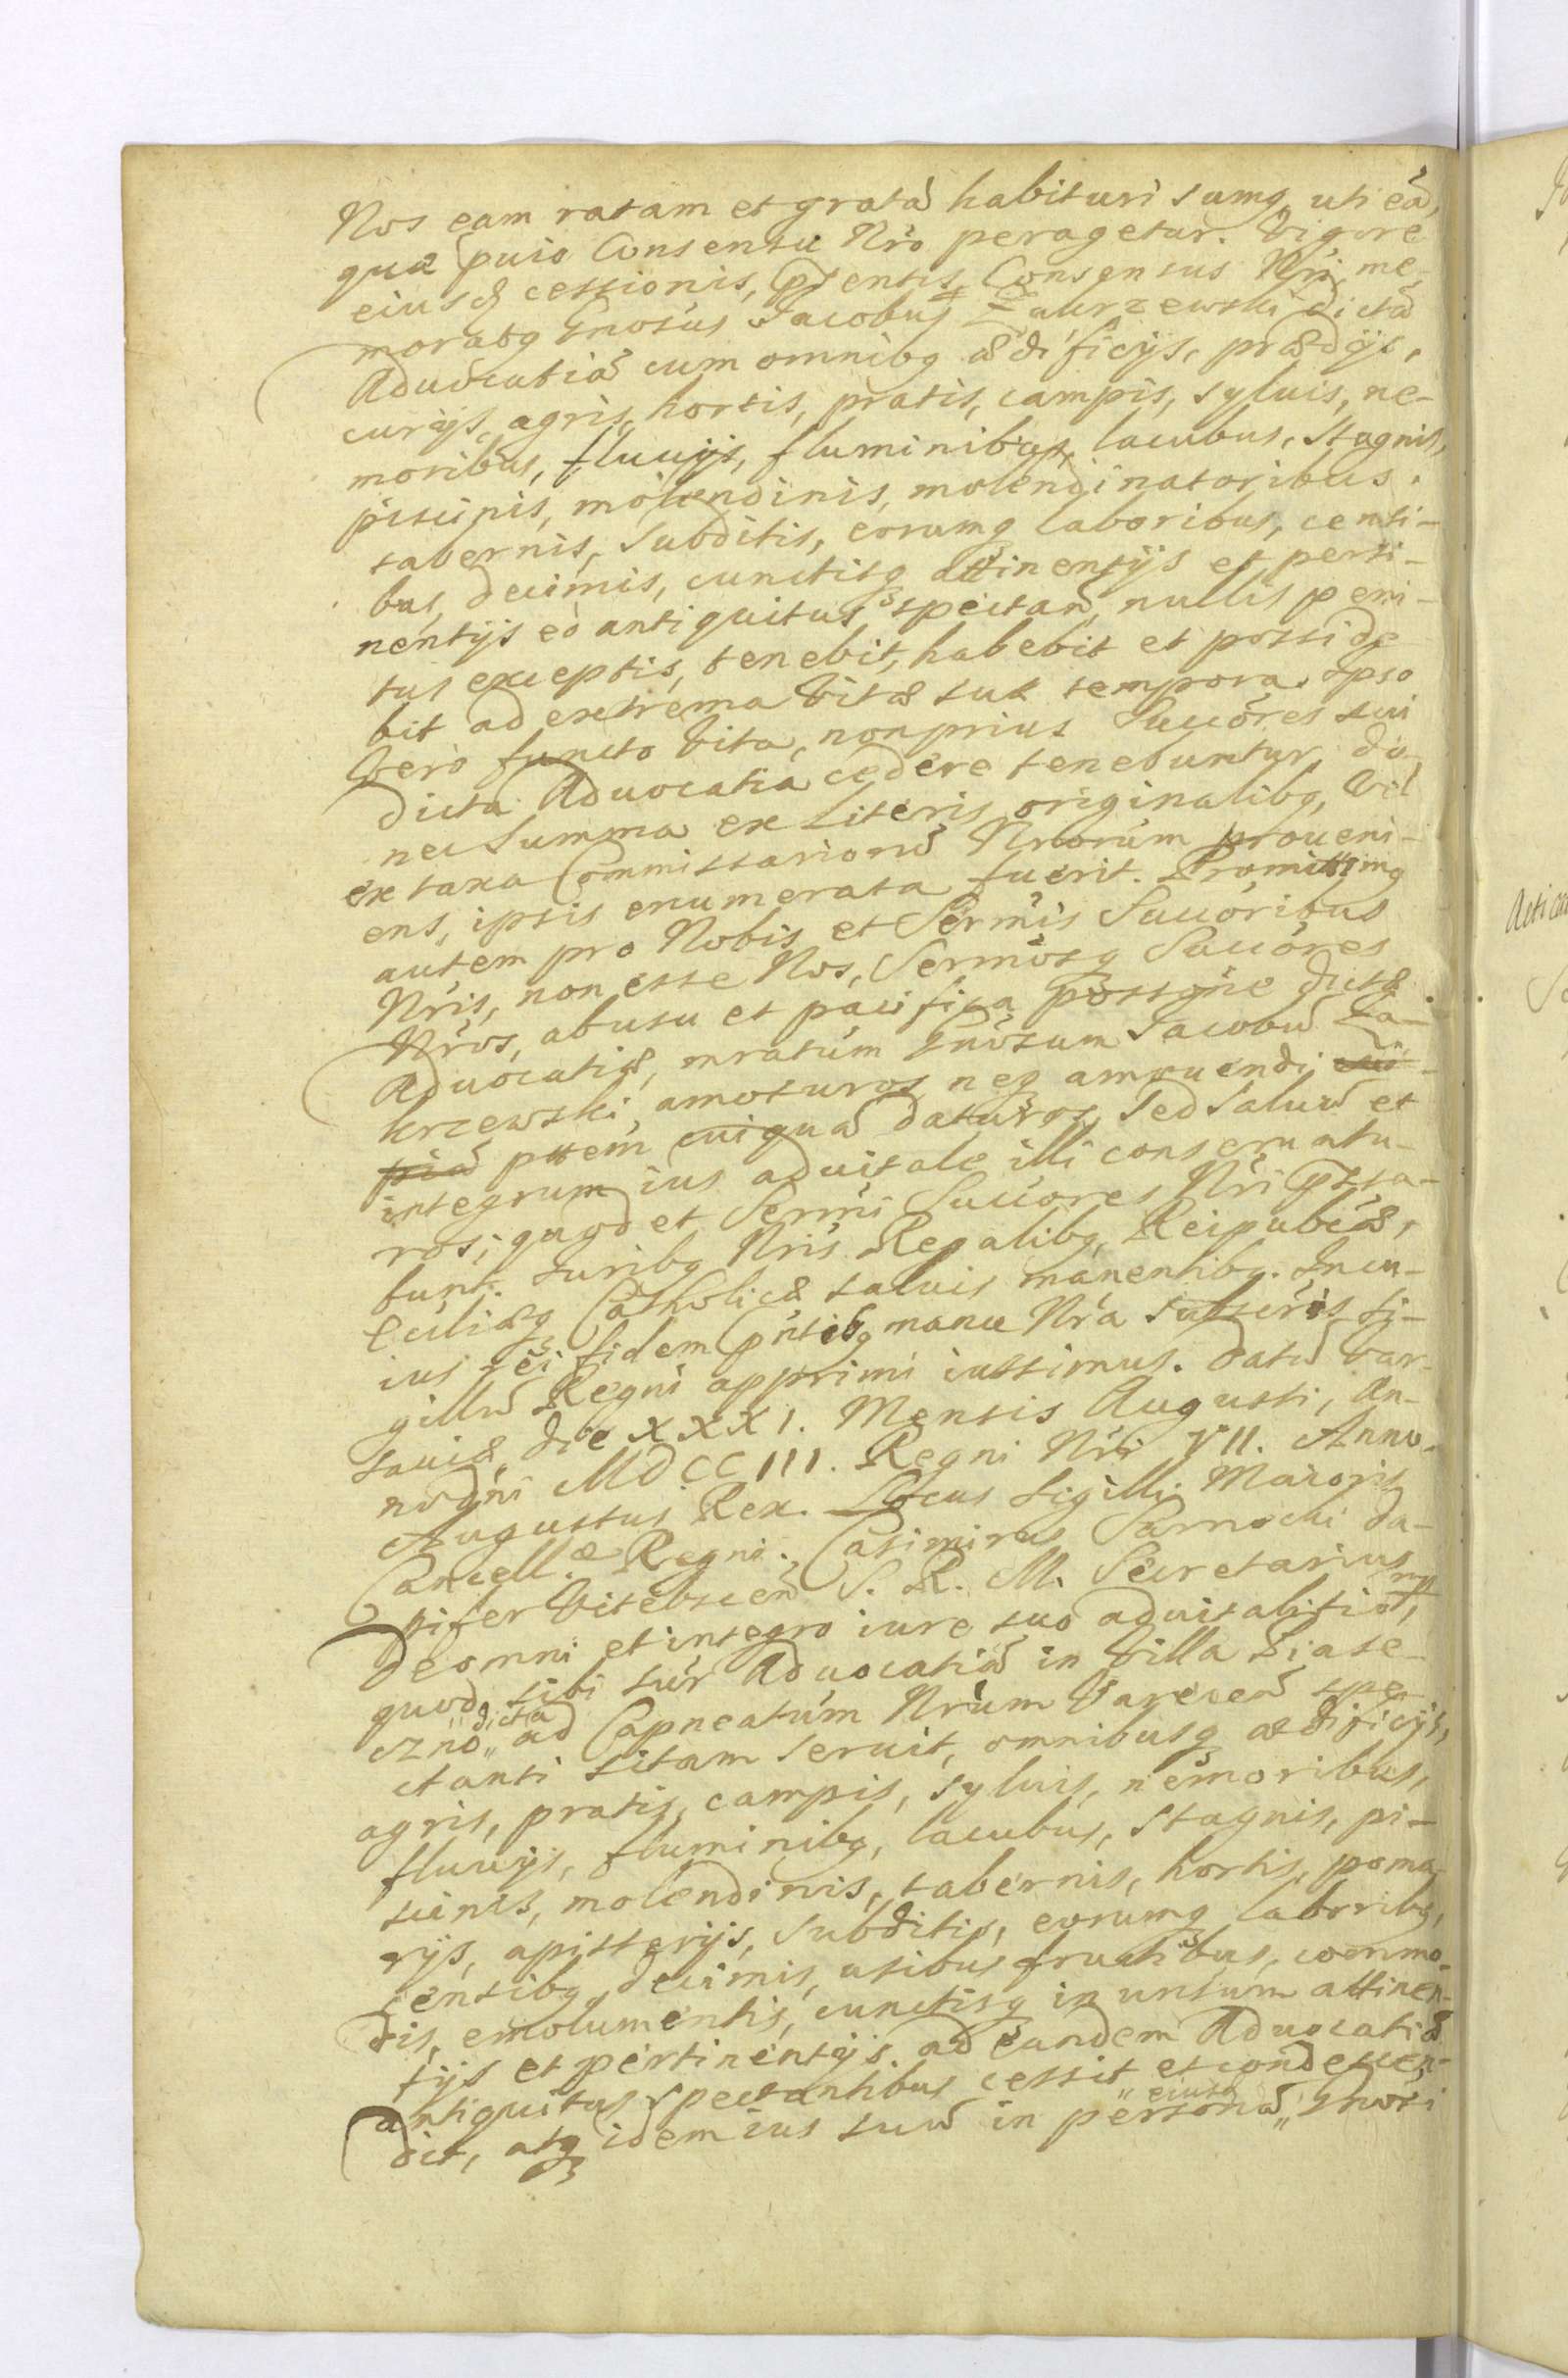 Nos eam ratam et gratã habituri sumq, uti eã,
qua puio Consensu Nro peragetur. Vigore
eiusd cessionis, Pntis Consensus Nri, me-
moratq Gnosus Jacobus Zakrzewski dictã
Aduocatiã cum omnibq ædificijs, prædijs,
curijs, agris, hortis, pratis, campis, syluis, ne-
moribus, fluuijs, fluminibus, lacubus, stagnis,
piscinis, molendinis, molendinatoribus,
tabernis, subditis, eorumq laboribus, censi-
bus, decimis, cunctisq attinentijs et perti-
nentijs eo antiquitus spectan, nullis peni-
tus exceptis, tenebit, habebit et posside
bit ad extrema vitæ suæ tempora. Ipso
vero functo vita, non prius Succores sui
dicta Aduocatia cedere tenebuntur, do-
nec Summa ex Literis originalibq, vel
ex taxa Commissariorũ Nrorum proueni-
ens, ipsis enumerata fuerit. Promittimq
autem pro Nobis et Sermis Succoribus
Nris, non esse Nos, Sermosq Succores
Nros, ab usu et pacifica possone dictæ
Aduocatiæ, mratum Gnosum Jacobũ Za-
krzewski, amoturos, neq amouendi
pttem cuiquã daturos, sed saluũ et
integrum ius aduitale illi conseruatu-
ros; quod et Sermi Succores Nri Pssta-
bunt. Juribq Nris Regalibq, Reipublcæ,
Eccliæq Catholicæ saluis manentibq. In cu-
ius rei fidem pntibq manu Nra subscris si-
gillũ Regni apprimi iussimus. Datũ Var-
sauiæ, die XXXI. Mensis Augusti, An-
no Dni MDCCIII. Regni Nri VII. Anno.
Augustus Rex. Locus sigilli Maioris
Cancell.æ Regni. Casimirus Sarnocki Da-
pifer Vitebscen S. R. M. Secretarius mp
De omni et integro iure suo aduitalitio,
quod sibi sur Aduocatiã in villa Liase-
czno „dicta ad Capneatum Nrum Varecen spe-
ctanti sitam seruit, omnibusq ædificijs,
agris, pratis, campis, syluis, nemoribus,
fluuijs, fluminibq, lacubus, stagnis, pi-
scinis, molendinis, tabernis, hortis, poma-
rijs, apisterijs, subditis, eorumq laboribq,
censibq, decimis, usibus fructibus, commo-
dis, emolumentis, cunctisq in unsum attinen-
tijs et pertinentijs ad eandem Aduocatiã
antiquitus spectantibus cessit et condescen-
dit, atq idem ius suũ in personã „eiusd Gnosi